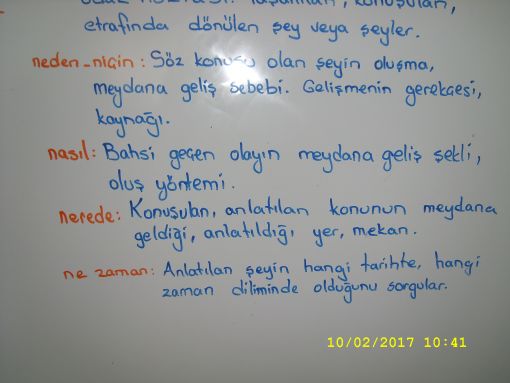 etrafinda dönülen şey veya şeyler.
neden-niçin: Söz konusu olan şeyin oluşma,
meydana geliş sebebi. Gelişmenin gerekçesi,
kaynağı.
nasıl: Bahsi geçen olayın meydana geliş şekli,
oluş yöntemi.
nerede: Konuşulan, anlatılan konunun meydana
geldiği, anlatıldığı yer, mekan.
ne zaman: Anlatılan şeyin hangi tarihte, hangi
zaman diliminde olduğunu sorgular.
10/02/2017 10:41